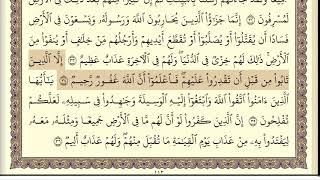 لَمُسْرِفُونَ ۝ إِنَّمَا جَزَٰٓؤُا۟ ٱلَّذِينَ يُحَارِبُونَ ٱللَّهَ وَرَسُولَهُۥ وَيَسْعَوْنَ فِى ٱلْأَرْضِ
فَسَادًا أَن يُقَتَّلُوٓا۟ أَوْ يُصَلَّبُوٓا۟ أَوْ تُقَطَّعَ أَيْدِيهِمْ وَأَرْجُلُهُم مِّنْ خِلَٰفٍ أَوْ يُنفَوْا۟ مِنَ
ٱلْأَرْضِ ۚ ذَٰلِكَ لَهُمْ خِزْىٌ فِى ٱلدُّنْيَا ۖ وَلَهُمْ فِى ٱلْءَاخِرَةِ عَذَابٌ عَظِيمٌ ۝ إِلَّا ٱلَّذِينَ
تَابُوا۟ مِن قَبْلِ أَن تَقْدِرُوا۟ عَلَيْهِمْ ۖ فَٱعْلَمُوٓا۟ أَنَّ ٱللَّهَ غَفُورٌ رَّحِيمٌ ۝ يَٰٓأَيُّهَا
ٱلَّذِينَ ءَامَنُوا۟ ٱتَّقُوا۟ ٱللَّهَ وَٱبْتَغُوٓا۟ إِلَيْهِ ٱلْوَسِيلَةَ وَجَٰهِدُوا۟ فِى سَبِيلِهِۦ لَعَلَّكُمْ
تُفْلِحُونَ ۝ إِنَّ ٱلَّذِينَ كَفَرُوا۟ لَوْ أَنَّ لَهُم مَّا فِى ٱلْأَرْضِ جَمِيعًا وَمِثْلَهُۥ مَعَهُۥ
لِيَفْتَدُوا۟ بِهِۦ مِنْ عَذَابِ يَوْمِ ٱلْقِيَٰمَةِ مَا تُقُبِّلَ مِنْهُمْ ۖ وَلَهُمْ عَذَابٌ أَلِيمٌ ۝
١١٣